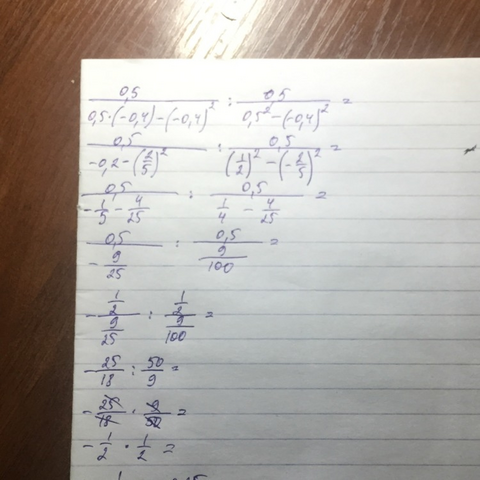 0,5/(0,5·(-0,4)-(-0,4)²) : 0,5/(0,5²-(-0,4)²) =
0,5/(-0,2-(2/5)²) : 0,5/((1/2)²-(-2/5)²) =
0,5/(-1/5-4/25) : 0,5/(1/4-4/25) =
0,5/(-9/25) : 0,5/(9/100) =
-(1/2)/(9/25) : (1/2)/(9/100) =
-25/18 : 50/9 =
-25/18 · 9/50 =
-1/2 · 1/2 =